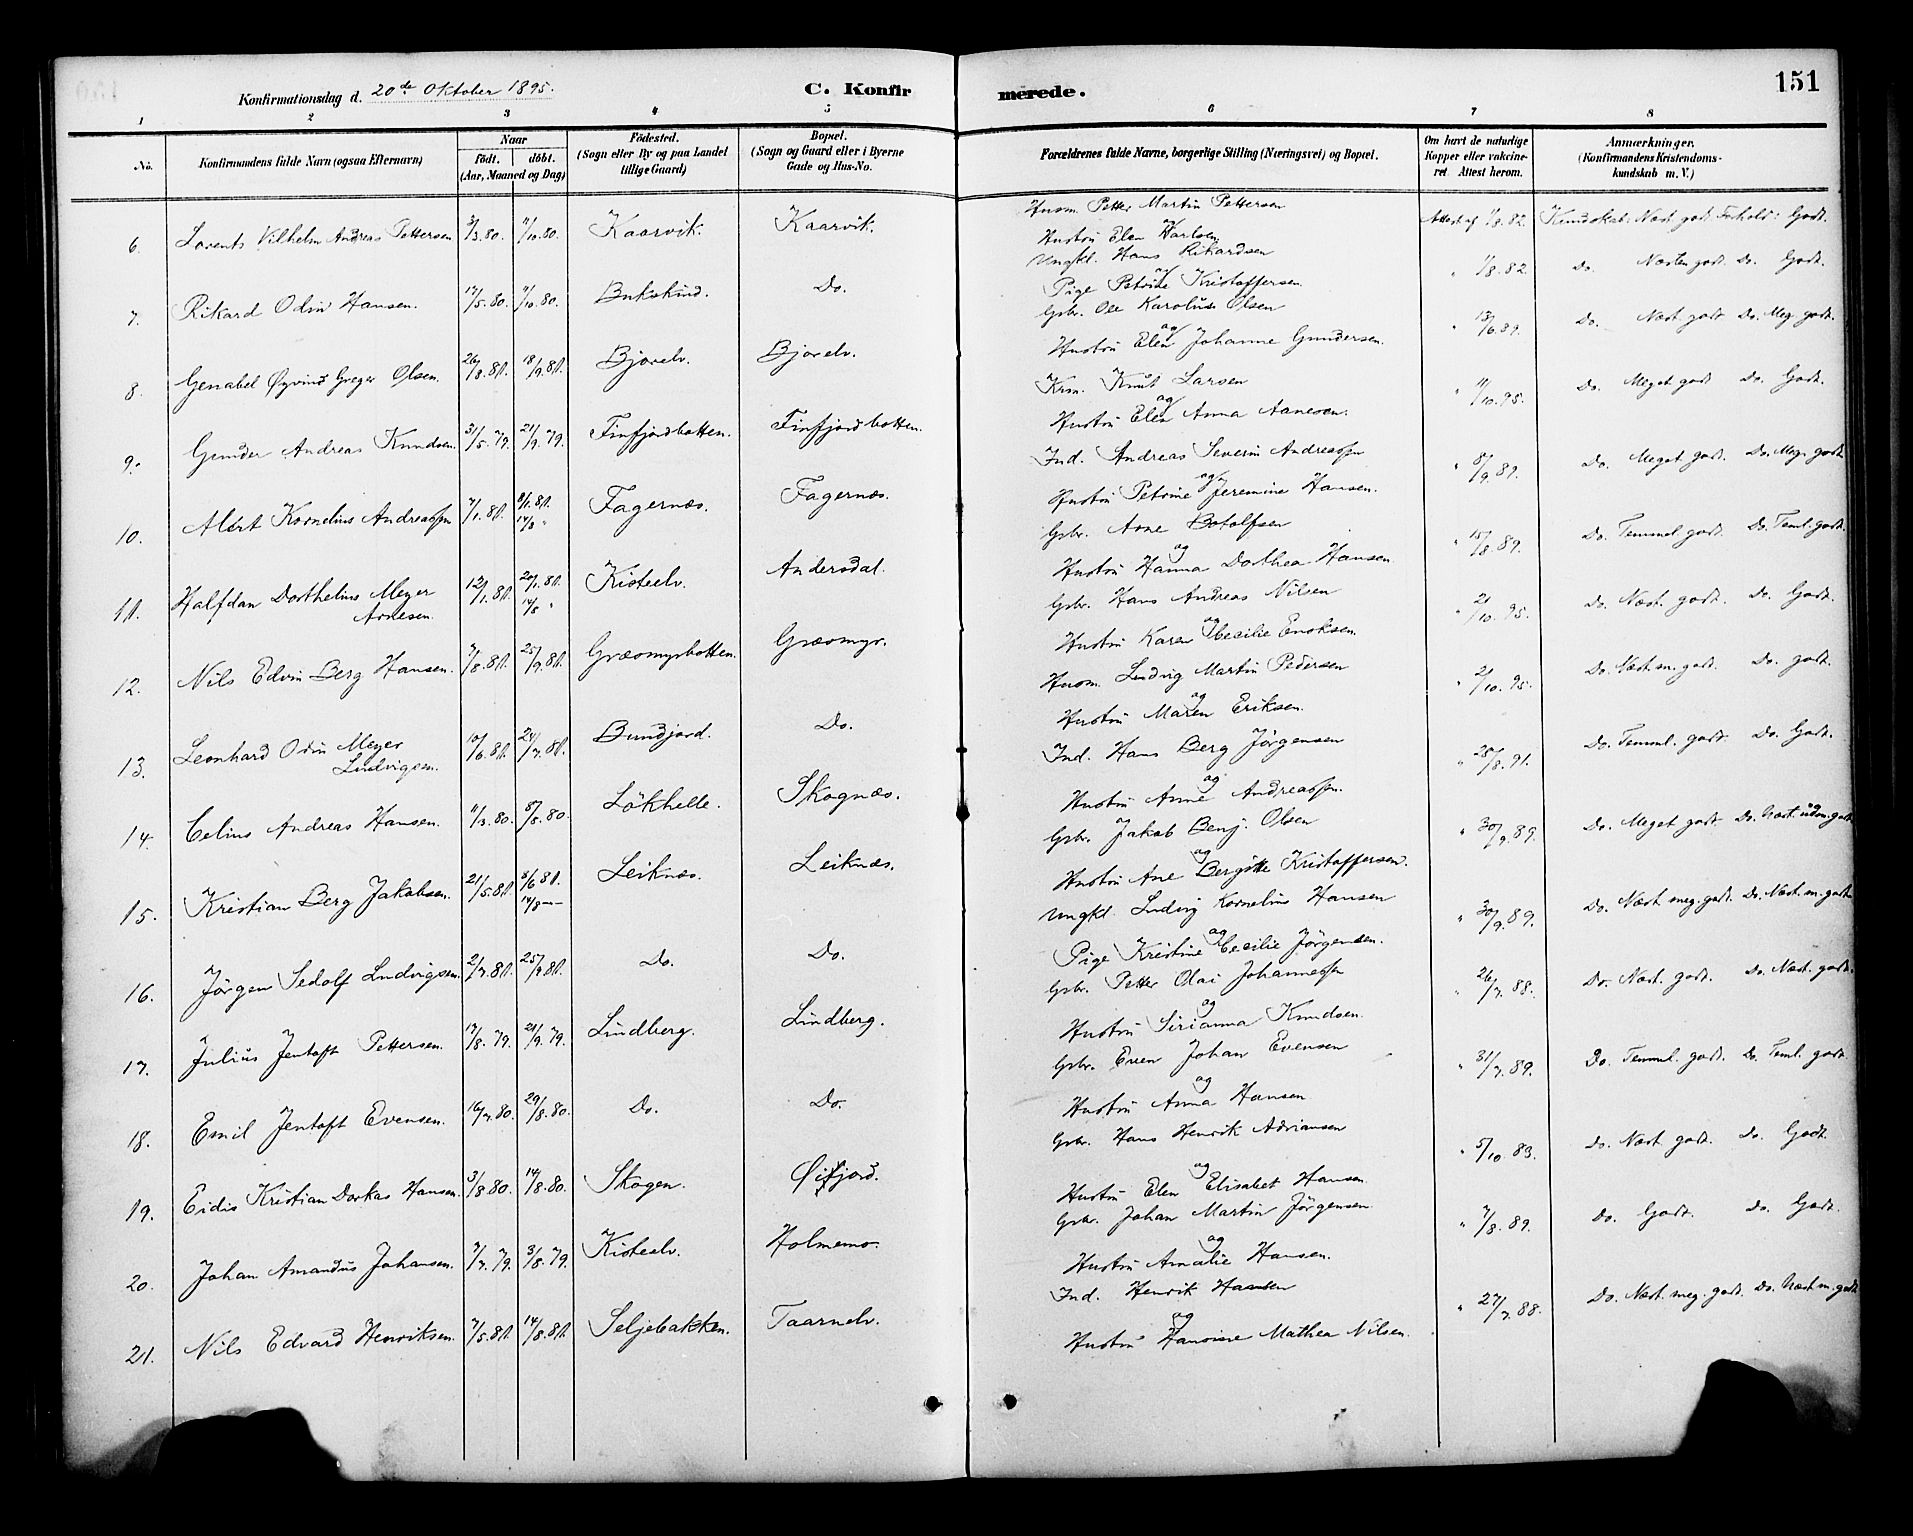 Konfirmationsdag d. 20de Oktober 1895.
C. Konfirmerede.
151
1 2 3 4 5 6 7 8
No.
Konfirmandens fulde Navn (ogsaa Efternavn)
Naar
födt. döbt.
(Aar, Maaned og Dag)
Födested.
(Sogn eller By og paa Landet
tillige Gaard)
Bopæl.
(Sogn og Gaard eller i Byerne
Gade og Hus-No.
Forældrenes fulde Navne, borgerlige Stilling (Næringsvei) og Bopæl.
Om havt de naturlige
Kopper eller vakcine-
ret Attest herom.
Anmærkninger.
(Konfirmandens Kristendoms-
kundskab m. V.)
6. Lorents Vilhelm Andreas Pettersen 3/3.80. 11/10.80. Kaarvik. Kaarvik. Husm. Petter Martin Pettersen
Hustru Elen Karlsen Attest af 1/8.82. Kundskab: Næst. godt. Forhold: Godt.
7. Rikard Odin Hansen. 17/5.80. 11/10.80. Bukskind. Do. Ungkl. Hans Rikardsen
og
Pige Petrine Kristoffersen. " 1/8.82 Do. Næsten godt. Do. Godt.
8. Genabel Øyvind Greger Olsen. 26/8.80. 18/9.80. Bjorelv. Bjorelv. Gbr. Ole Karolius Olsen
og
Hustru Elen Johanne Gundersen. " 13/6.89. Do. Næst. godt Do. Meg. godt.
9. Gunder Andreas Knudsen. 31/5.79. 21/9.79. Finfjordbotten. Finfjordbotten. Krm. Knut Larsen
og
Hustru Elen Anna Aanesen. " 11/10.95. Do. Meget godt Do. Godt.
10. Albert Kornelius Andreassen 7/1.80. 8/1.80. 14/3 " Fagernæs. Fagernæs. Ind. Andreas Severin Andreassen
og
Hustru Petrine Jeremine Hansen. " 8/9.89. Do. Meget godt. Do. Meg. godt
11. Halfdan Dorthelius Meyer
Arnesen. 12/1.80. 20/1.80. 14/8 " Kisteelv. Andersdal. Gbr. Arne Botolfsen
og
Hustru Hanna Dorthea Hansen. " 15/8.89. Do. Temmel. godt. Do. Teml. godt.
12. Nils Edvin Berg Hansen. 7/8.80. 25/9.80. Græsmyrbotten. Græsmyr. Gbr. Hans Andreas Nilsen
og
Hustru Karen Cecilie Enoksen. " 21/10.95. Do. Næst. godt. Do. Godt.
13. Leonhard Odin Meyer
Ludvigsen. 10/6.80. 24/7.80. Bundjord. Do. Husm. Ludvig Martin Pedersen
og
Hustru Maren Eriksen. " 2/10.95. Do. Næst m. godt. Do. godt.
14. Celius Andreas Hansen. 11/3.80. 8/8.80. Lökhelle. Skognæs. Ind. Hans Berg Jörgensen
og
Hustru Anne Andreassen. " 28/8.91. Do. Temml. godt. Do. Godt.
15. Kristian Berg Jakobsen. 21/5.80. 8/6 80. 14/8 — Leiknæs. Leiknæs. Gbr. Jakob Benj. Olsen
og
Hustru Ane Bergitte Kristoffersen. " 30/9.89. Do. Meget godt. Do. Næst. udm. godt
16. Jörgen Sedolf Ludvigsen. 2/7.80. 25/9.80. Do. Do. Ungkl. Ludvig Kornelius Hansen
og
Pige Kristine Cecilie Jörgensen. " 30/9.89. Do. Næst. meg. godt. Do. Næst. m. godt.
17. Julius Jentoft Pettersen. 17/8.79. 21/9.79. Lindberg. Lindberg. Gbr. Petter Olai Johannessen
og
Hustru Sirianna Knudsen. " 26/7.88. Do. Næst. godt. Do. Næst. godt.
18. Emil Jentoft Evensen. 16/7.80. 29/8.80. Do. Do. Gbr. Even Johan Evensen
og
Hustru Anna Hansen " 31/7.89. Do. Temml. godt. Do. Teml. godt.
19. Eidis Kristian Dorkas Hansen. 3/8.80. 14/8.80. Skogen. Øifjord. Gbr. Hans Henrik Adriansen
og
Hustru Elen Elisabet Hansen " 5/10 83. Do. Næst godt. Do. Godt.
20. Johan Amandus Johansen. 7/7.79. 3/8.79. Kisteelv. Holmemo. Gbr. Johan Martin Jörgensen
og
Hustru Amalie Hansen. " 7/8.89. Do. Godt. Do. Godt.
21. Nils Edvard Henriksen. 7/5.80. 14/8.80. Seljebakken. Taarnelv. Ind. Henrik Hansen
og
Hustru Hansine Mathea Nilsen. " 27/7.88. Do. Næst. meg. godt. Do. Næst m. godt